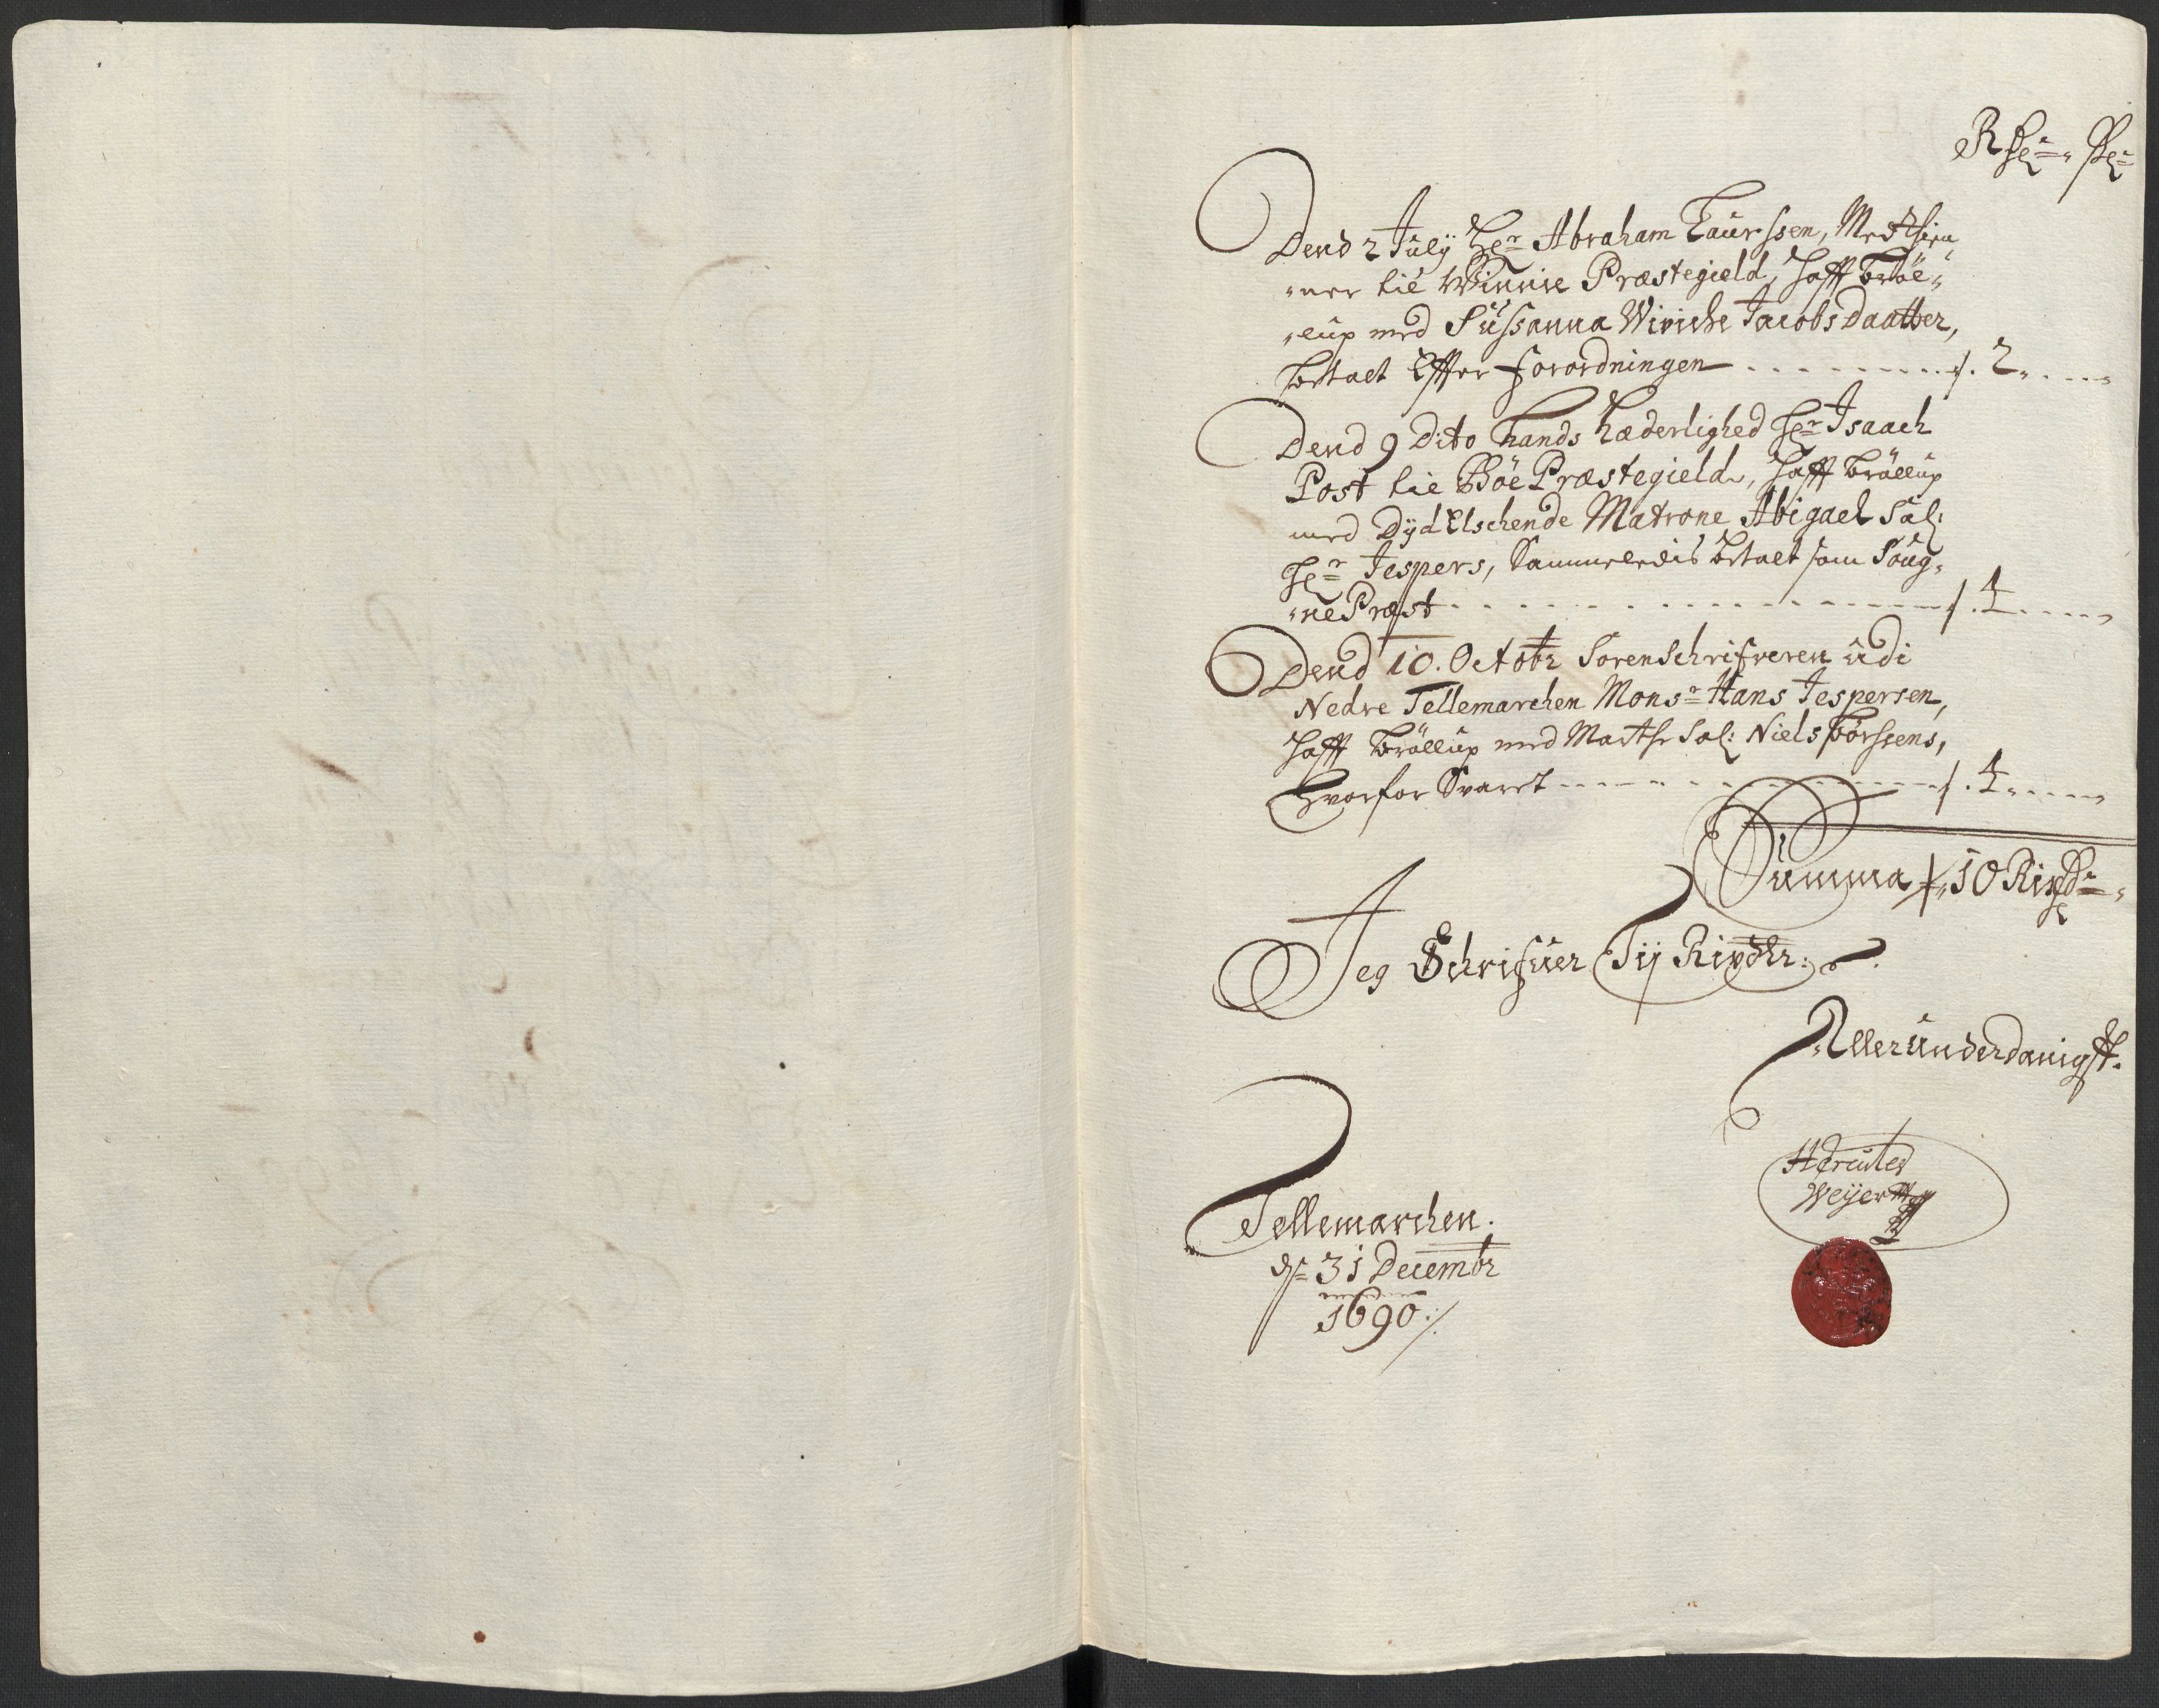 Rdr. ß.
Dend 2 Julÿ Hr. Abraham Laurssen, Medthien„
„ner till Winnie Præstegield, hafft Bröl„
„lup med Sussanna Wiviche Jacobs Daatter,
betalt Effter forordningen - - - 2.
Dend 9 Dito hands Hæderlighed Hr. Isaach
Post till Böe Præstegield, hafft Bröllup
med DÿdElschende Matrone Abigael Sal:
Hr. Jespers, Sammeledis betalt som Soug„
„ne Præst - - - 4
Dend 10. Octobr Sorenschrifveren udi
Nedre Tellemarchen Monsr. Hans Jespersen,
hafft Bröllup med Marthe Sal: Niels
Hvorfor Svaret - - - 4
Summa 10 Rixdr.
Jeg Schrifuer Tij Rixdlr.
Allerunderdanigst.
Hercules
Weÿer
Tellemarchen.
dn. 31 Decembr
1690